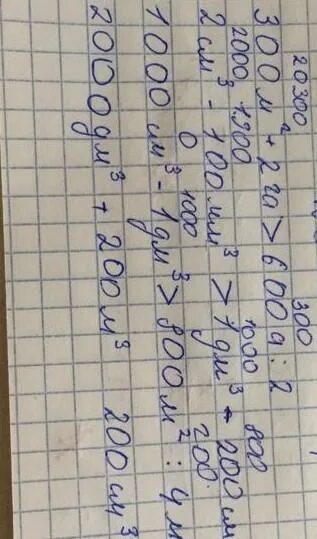 20300 300
300м² + 2га > 600а : 2
2000 1900 1000 800
2 см³ - 100мм³ > 1дм³ - 200 см
0 1000 200
1000 см³ - 1дм³ > 800м² : 4м
2000дм³ + 200м³ 200см³